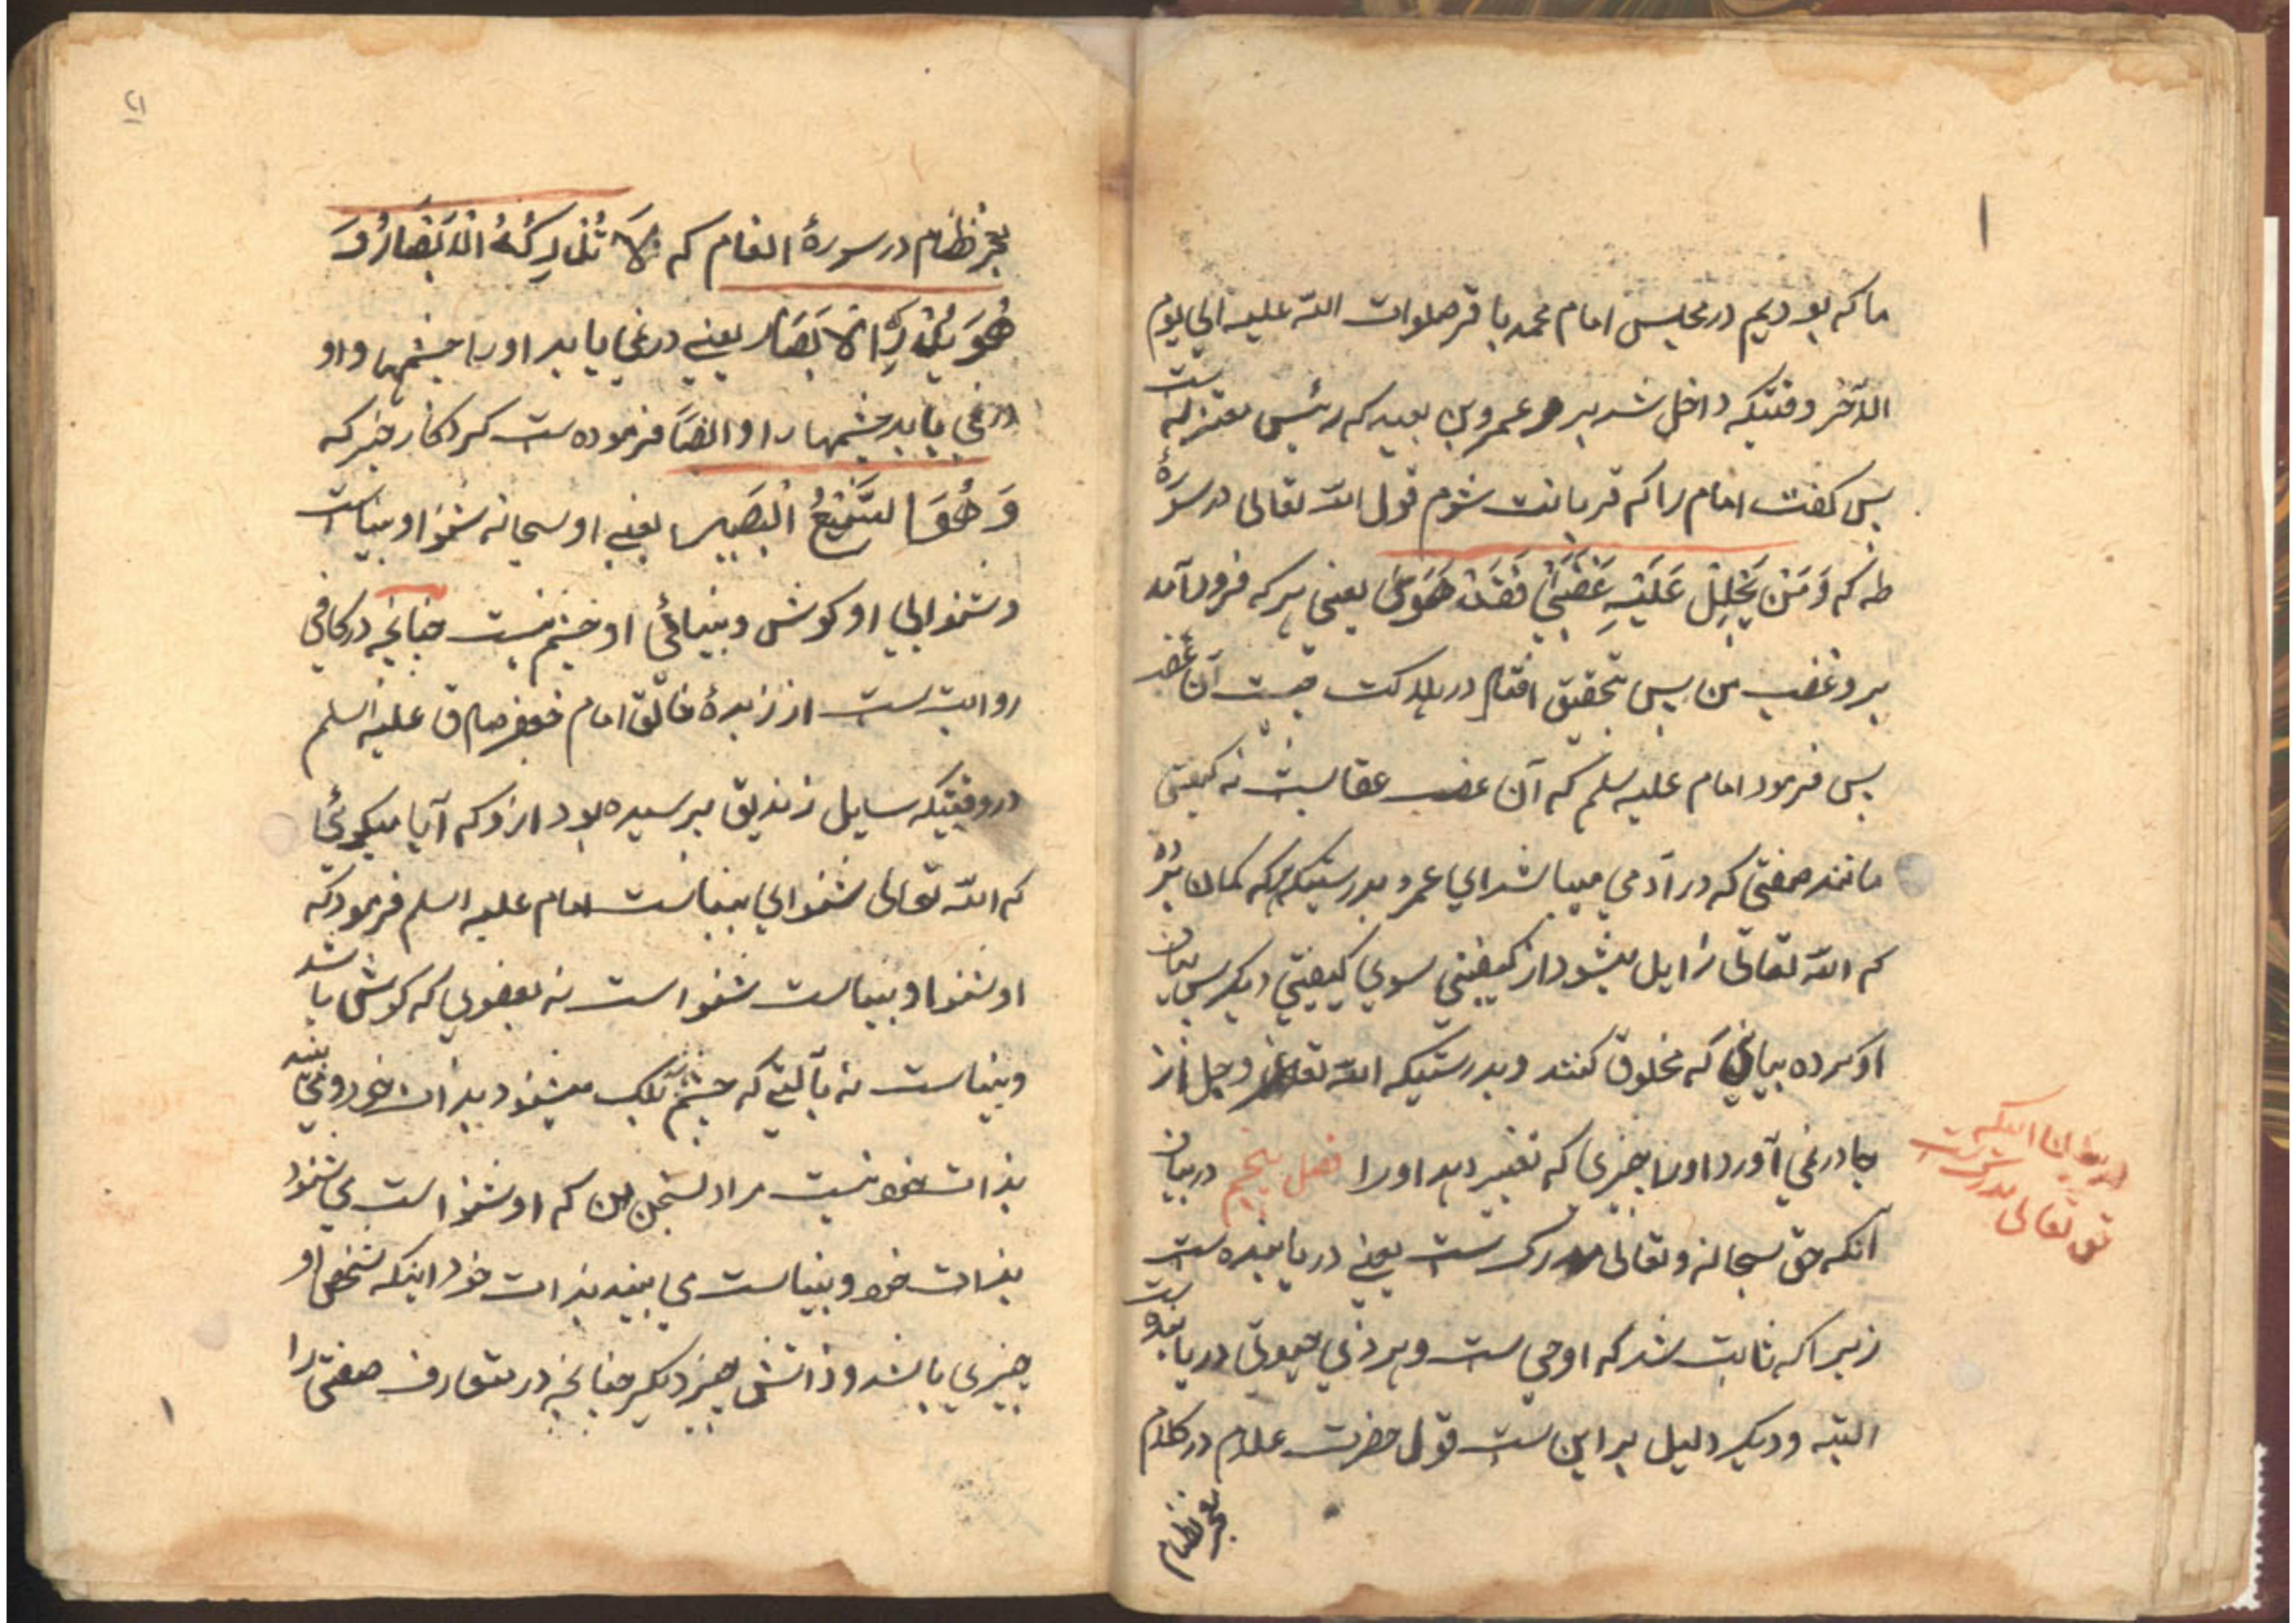 ما که بودیم در مجلس امام محمد باقر صلوات الله علیه الی یوم
الآخر وقتیکه داخل شد برو عمرو بن عبید که رئیس معتزله ست
پس کفت امام را که قربانت شوم قول الله تعالی در سورهٔ
طه که وَمَنْ یَحْلِلْ عَلَیْهِ غَضَبِیْ فَقَدْ هَوَیٰ یعنی هر که فرود آمد
برو غضب من پس بتحقیق افتاد در هلاکت چیست آن غضب
پس فرمود امام علیه سلم که آن غضب عقابست نه کیفیتی
مانند صفتی که در آدمی میباشد ای عمرو بدرستیکه هر که کمان برد
که الله تعالی زایل میشود از کیفیتی سوی کیفیتی دیکر پس بیان
او کرده بیانی که مخلوق کنند و بدرستیکه الله تعالی عز وجل از
جا در نمی آورد او را چیزی که تغییر دهد او را فصل پنجم در بیان
آنکه حق سبحانه و تعالی مدرک ست یعنی دریابنده ست
زیرا که ثابت شد که او حی ست و هر ذی حیوتی دریابنده ست
البته و دیکر دلیل بر این ست قول حضرت علام در کلام
معجز نظام
حق تعالی مدرکست
معجز نظام در سورهٔ انعام که لَا تُدْرِکُهُ الْاَبْصَارُ وَ
هُوَ یُدْرِکُ الْاَبْصَارَ یعنی در نمی یابد او را چشمها و او
در می یابد چشمها را و ایضاً فرموده ست کردکار خبر که
وَ هُوَ السَّمِیْعُ الْبَصِیر یعنی او سبحانه شنوا و بیناست
و شنوایی او کوش و بینائی او چشم نیست چنانچه در کافی
روایت ست از زبدهٔ خلایق امام جعفر صادق علیه السلم
در وقتیکه سایل زندیق پرسیده بود ازو که آیا میکوئی
که الله تعالی شنوای بیناست امام علیه السلم فرمود که
او شنوا و بیناست شنواست نه بعضوی که کوش باشد
و بیناست نه بآلتی که چشم بلکه میشنود بذات خود و می بیند
بذات خود نیست مراد سخن من که او شنوا است می شنود
بذات خود و بیناست می بیند بذات خود اینکه شخص او
چیزی باشد و ذاتش چیز دیکر چنانچه در متعارف صفتی را